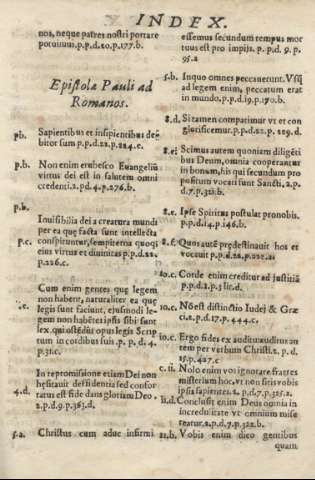 INDEX.
nos, neque patres nostri portare
potuimus. p.p.d.20.p.177.b.
Epistolæ Pauli ad
Romanos.
p.b. Sapientibus et insipientibus de-
bitor sum p.p.d.22.p.224.c.
p.b. Non enim erubesco Euangeliũ
virtus dei est in salutem omni
credenti.2.pd.4.p.276.b.
p.b.
Inuisibilia dei a creatura mundi
per ea quę facta sunt intellecta
p.c. conspiciuntur, sempiterna quoq;
eius virtus et diuinitas p.p.d.22.
p.226.c.
Cum enim gentes quę legem
non habent, naturaliter ea quę
.c. legis sunt faciunt, eiusmodi le-
gem non habẽtes ipsi sibi sunt
lex, qui ostẽdũt opus legis Scrip
tum in cordibus suis. p. p. d. 4.
p.31.c.
In repromissione etiam Dei non
hęsitauit diffidentia sed confor
4.d. tatus est fide dans gloriam Deo.
2.p.d.9.p.363.d.
5.a. Christus cum adhuc infirmi
essemus secundum tempus mor
tuus est pro impijs. p. p. d. 9. p.
95.a
5.b. In quo omnes peccauerunt. Vsq;
ad legem enim, peccatum erat
in mundo, p.p.d.19.p.170.b.
8.d. Si tamen compatimur vt et con
glorificemur.p.p.d.22.p.229.d.
8.e. Scimus autem quoniam diligẽti
bus Deum, omnia cooperantur
in bonum, his qui secundum pro
positum vocati sunt Sancti.2.p.
d.7.p.312.b.
8.e. Ipse Spiritus postulat pro nobis.
p.p.d.14.p.131.b.
8.f. Quos autẽ prędestinauit hos et
vocauit p.p.d.22.p.222.a.
10.c. Corde enim creditur ad iustitiã
p.p.d.2.p.3 lit.d.
10.c. Nõ est distinctio Iudęi & Græ
ci.2.p.d.17.p.444.c.
10.c. Ergo fides ex auditu auditus au
tem per verbum Christi.2.p.d.
15.p.427.c
c.11. Nolo enim vos ignorare fratres
misterium hoc, vt non sitis vobis
ipsis sapientes.2.p.d.7.p.325.a.
11.d. Conclusit enim Deus omnia in
incredulitate vt omnium mise
reatur.2.p.d.7.p.322.b.
11,b. Vobis enim dico gentibus
quam